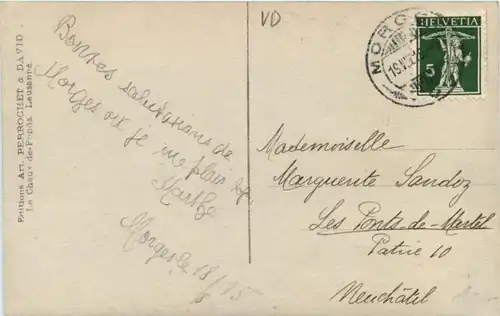 Editions Art. PERROCHET & DAVID
La Chaux-de-Fonds, Lausanne
VD
Bonnes salutations de
Morges où je me plais
Marthe
Morges le 18/ 15
MORGES
HELVETIA
5
Mademoiselle
Marguerite Sandoz
Les Ponts-de-Martel
Patrie 10
Neuchâtil